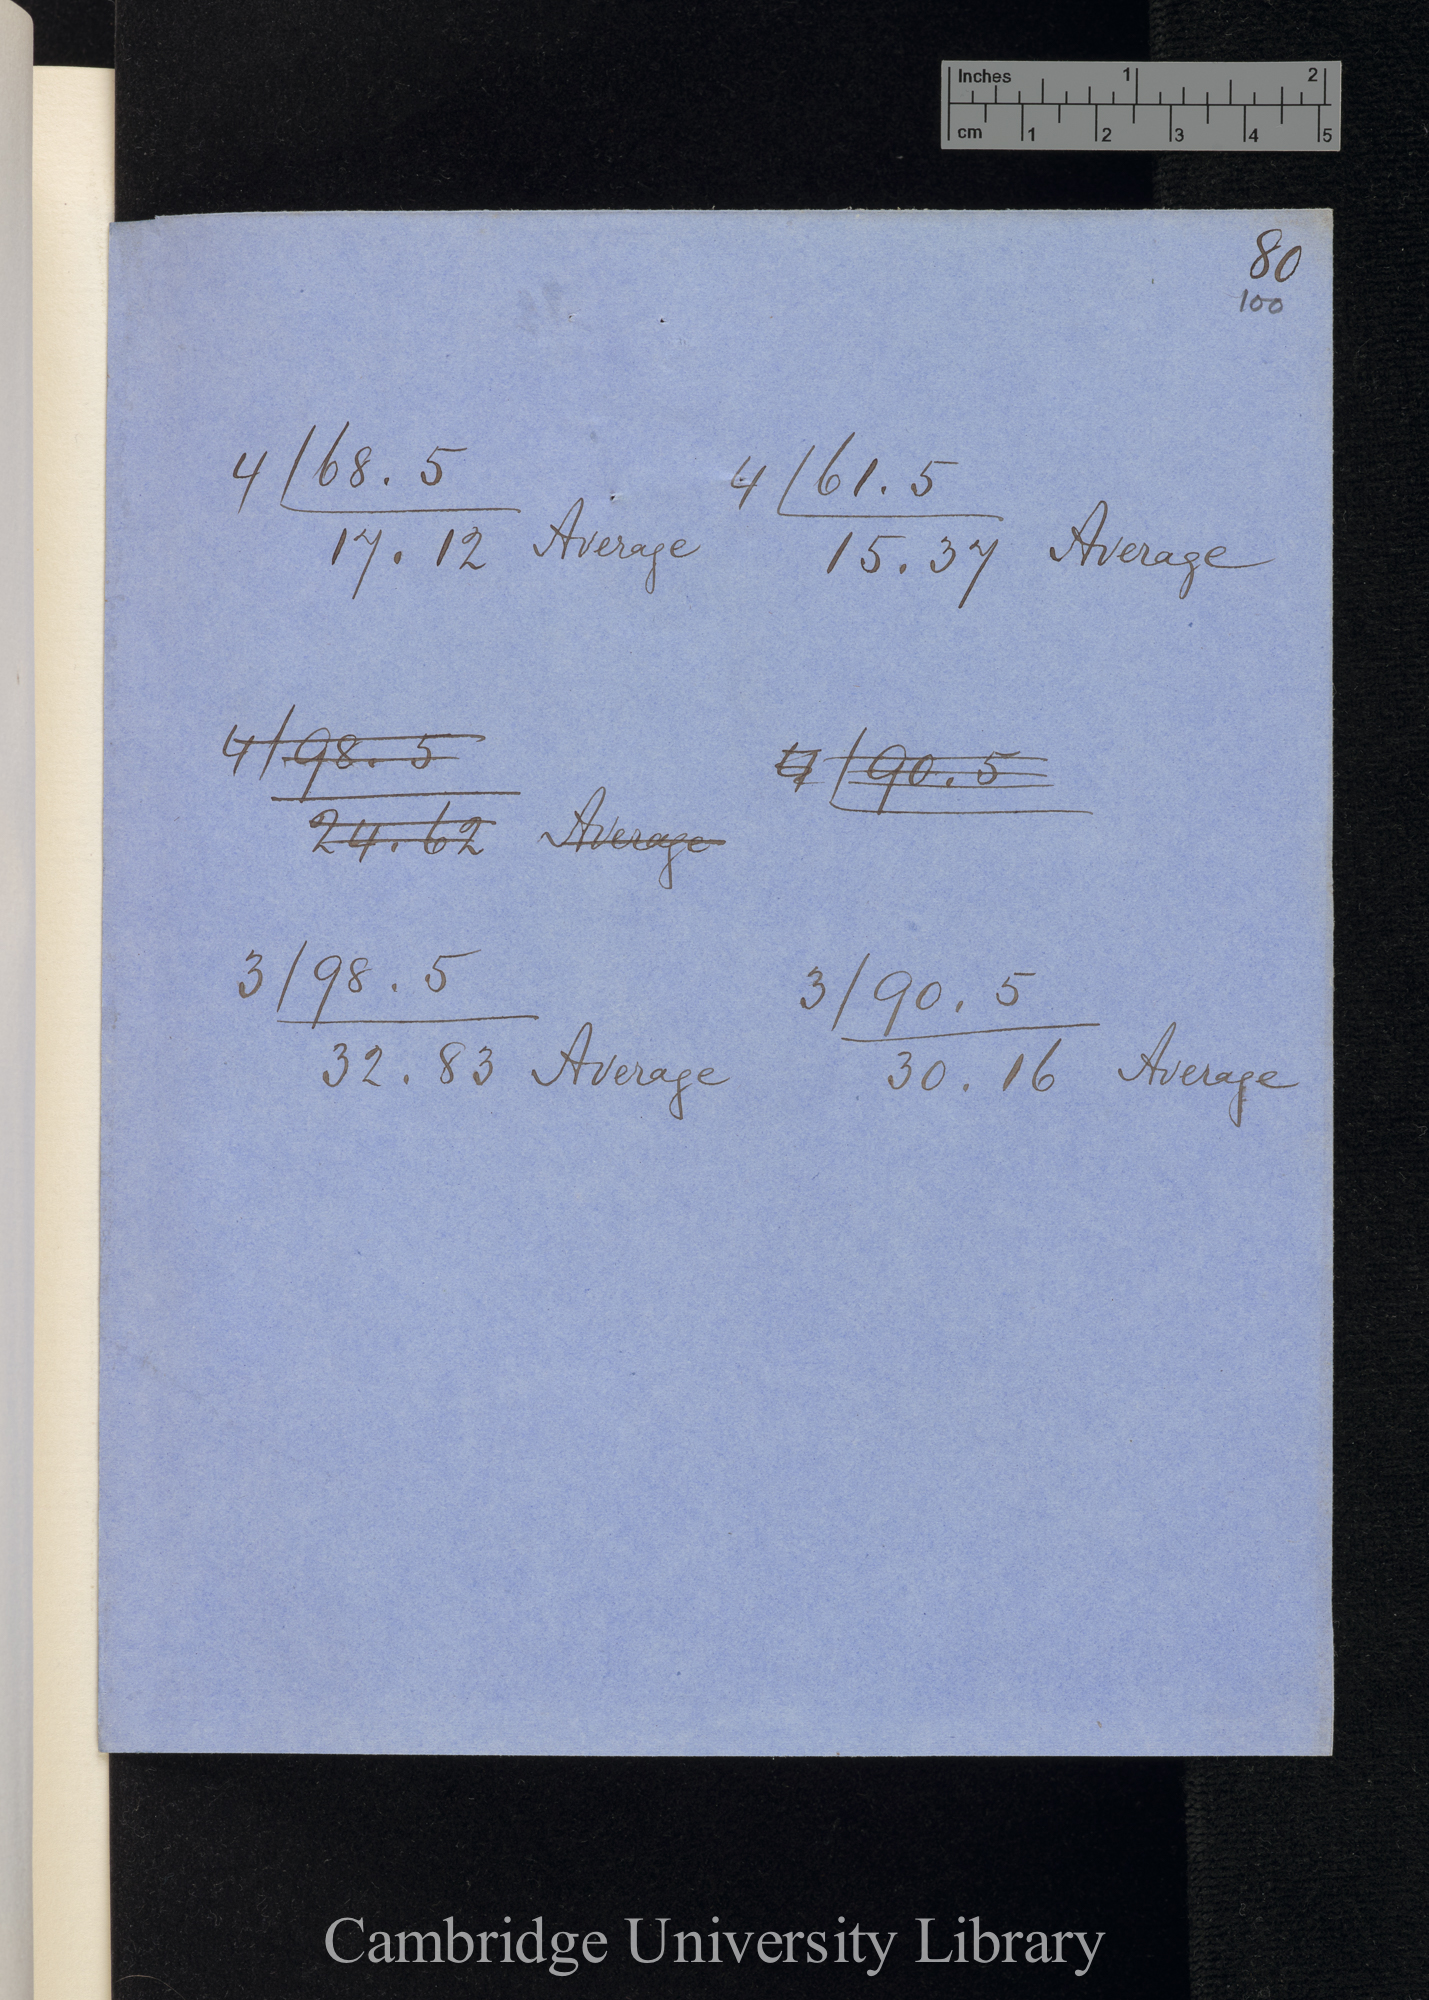 Inches 1 2
cm 1 2 3 4 5
80
100
4 /68. 5 4 /61. 5
17. 12 Average 15. 37 Average
4 /98. 5 4 /90. 5
24. 62 Average
3 /98. 5 3 /90. 5
32. 83 Average 30. 16 Average
Cambridge University Library